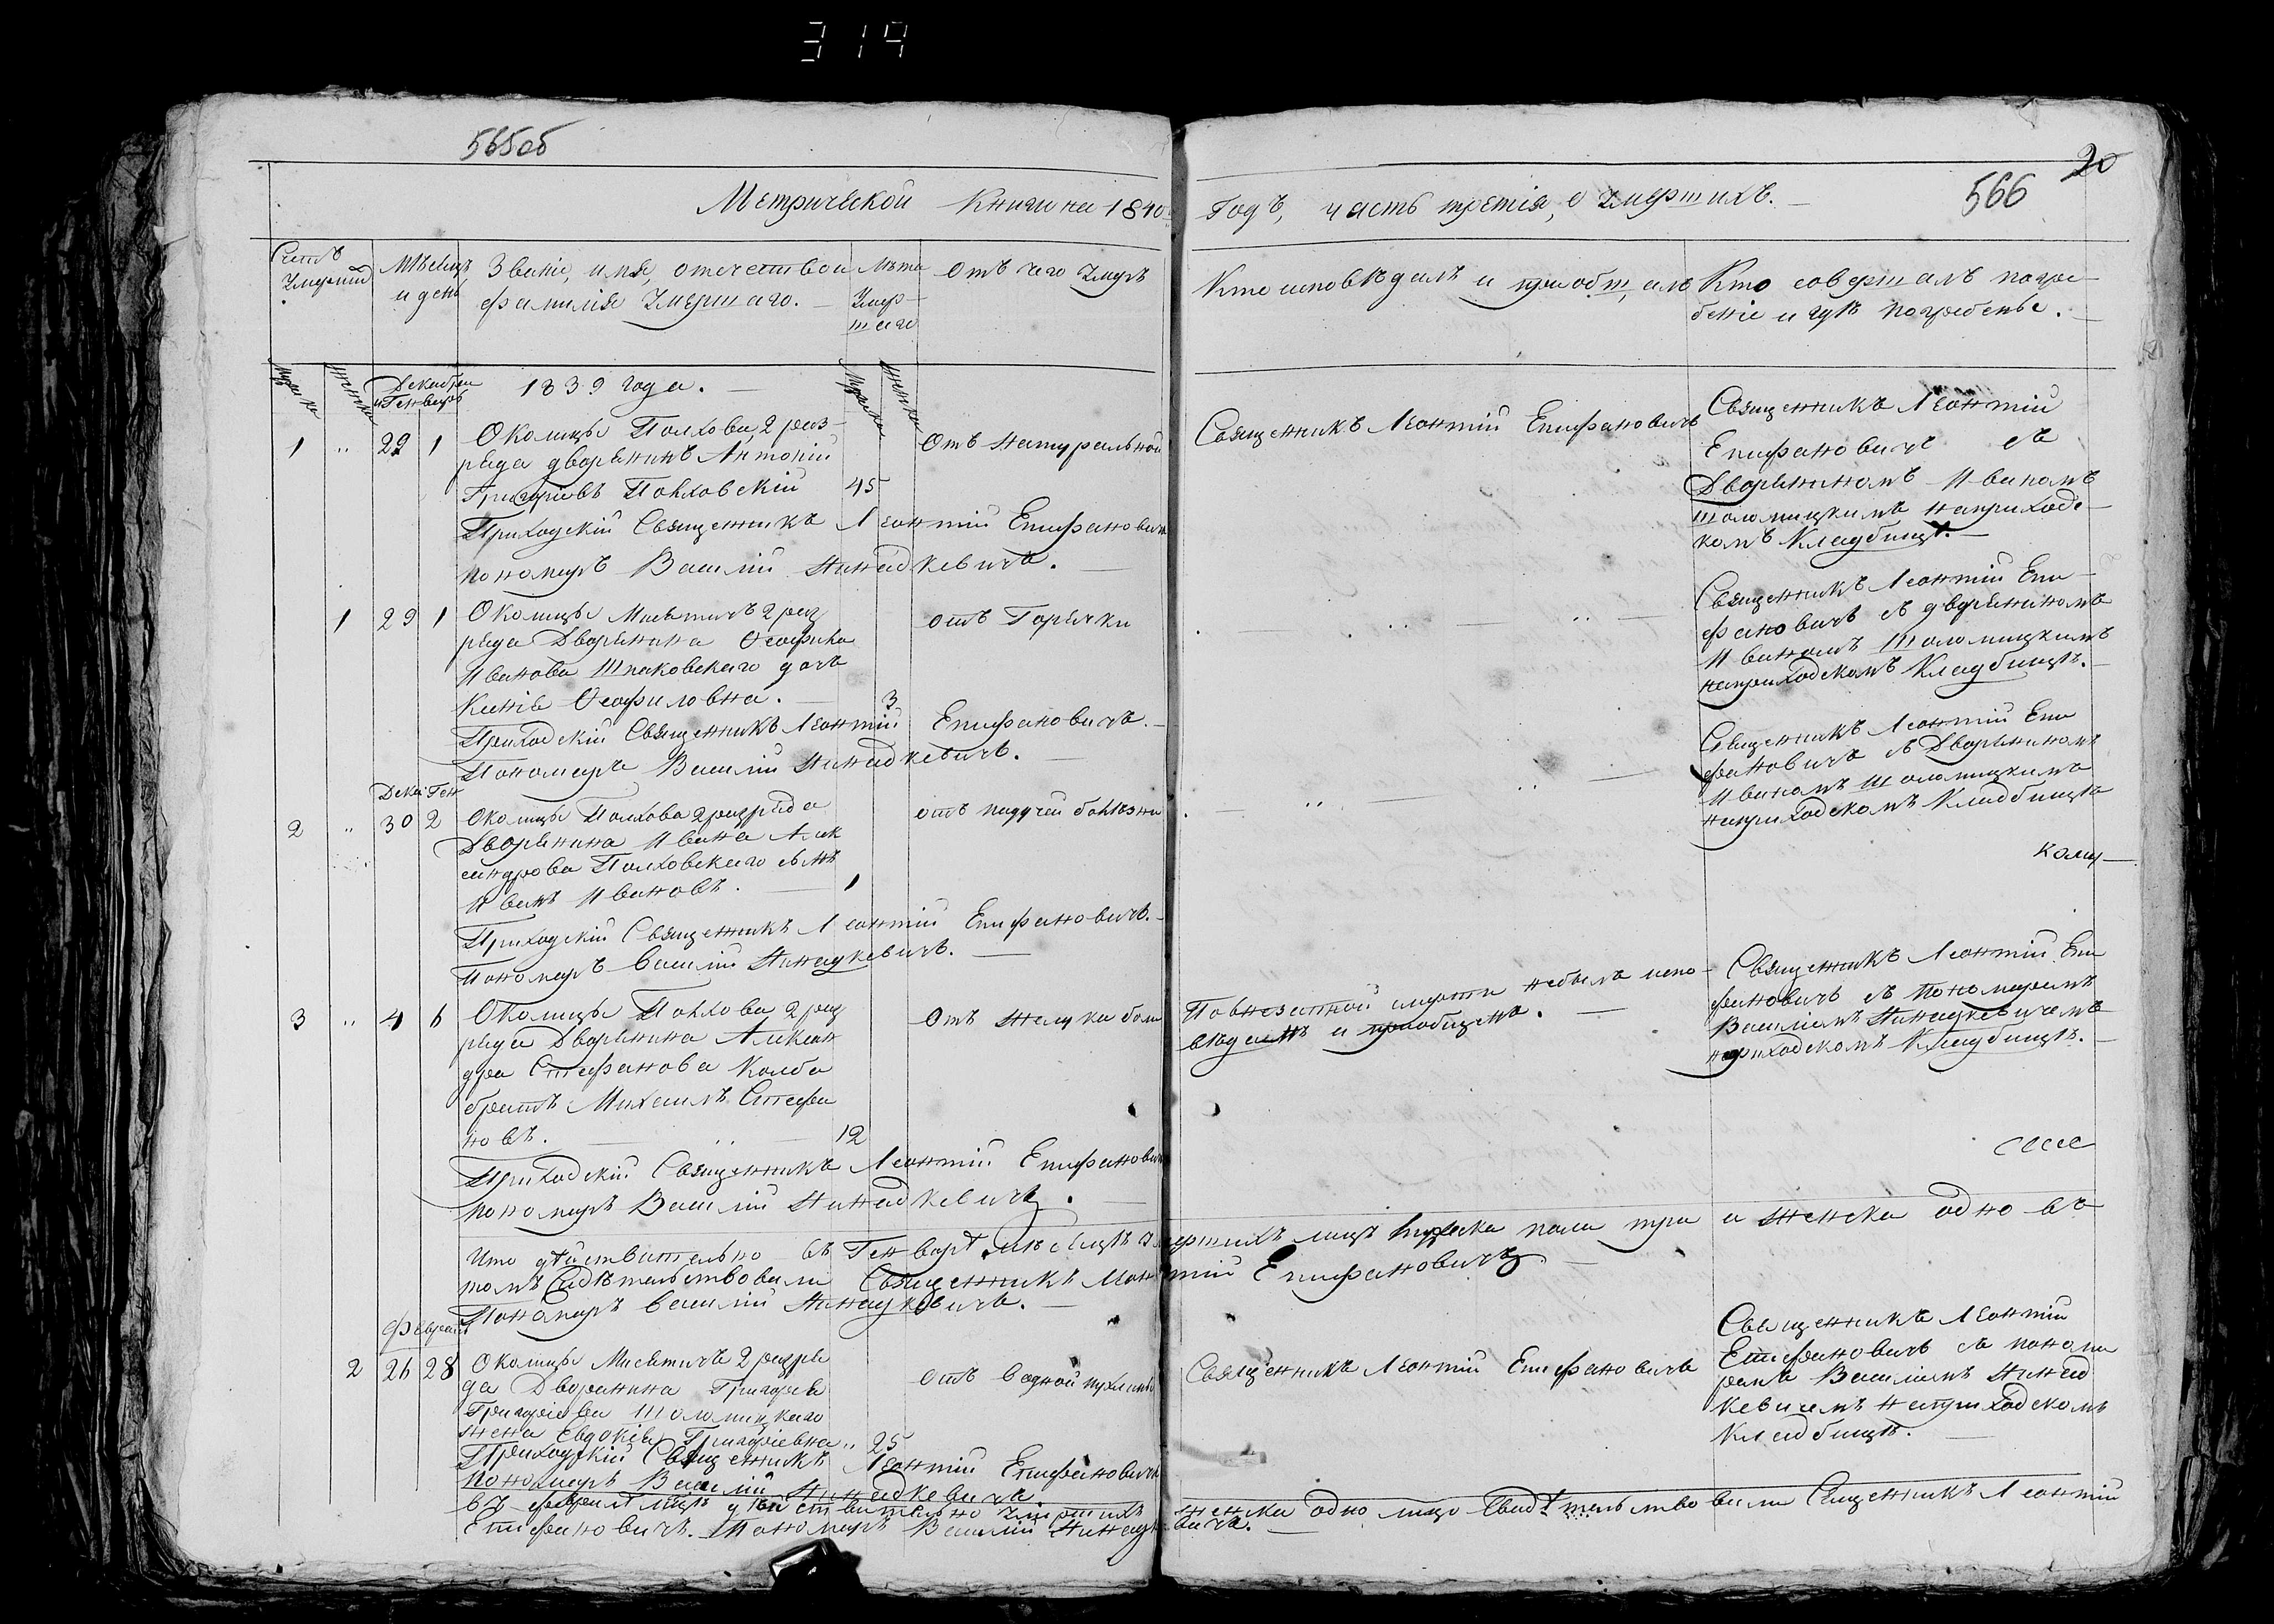 314
565об
20
566
Метрической Книги на 1840 Годъ, часть третія, о Умершихъ.
Счетъ Умершій
Мѣсяцъ и день
Званіе, имя, отечество и фамилія Умершаго.
Лѣта Умер-шаго
Отъ чего Умеръ
Кто исповѣдалъ и приобщалъ
Кто совершалъ погре-
беніе и гдѣ погребены.
Мужска
Женска
Декабрь
и Генварь
1839 года.
Мужска
Женска
1 " 29 1
Околицы Полхова 2 раз-
ряда дворянинъ Антоній
Григоріевъ Полховскій 45
Отъ натуральной
Священникъ Леонтій Епифановичъ
Священникъ Леонтій
Епифановичъ съ
Дворяниномъ Иваномъ
Шоломицкимъ на приходс-
комъ Кладбищѣ.
Приходскій Священникъ Леонтій Епифановичъ
пономарь Василій
1 29 1
Околицы Мисятичъ 2 раз
ряда Дворянина Ѳеофила
Иванова Шпаковскаго дочь
Ксенія Ѳеофиловна. 3
отъ Горячки
Священникъ Леонтій Епи-
фановичъ съ дворяниномъ
Иваномъ Шоломицкимъ
на приходскомъ Кладбищѣ.
Приходскій Священникъ Леонтій Епифановичъ.
Пономарь Василій
Дека Ген
2 " 30 2
Околицы Полхова 2 разряда
Дворянина Ивана Алек
сандрова Полховскаго сынъ
Иванъ Ивановъ. 1
отъ падучей болѣзни
Священникъ Леонтій Епи
фановичъ съ Дворяниномъ
Иваномъ Шоломицкимъ
на приходскомъ Кладбищѣ
Приходскій Священникъ Леонтій Епифановичъ.
Пономарь Василій
3 " 4 6
Околицы Полхова 2 раз
ряда Дворянина Алексан
дра Стефанова Колба
братъ Михаилъ Стефа
новъ. 12
Отъ
По внезапной смерти не былъ испо-
вѣданъ и приобщенъ.
Священникъ Леонтій Епи
фановичъ съ пономаремъ
Василіемъ
на приходскомъ Кладбищѣ.
Приходскій Священникъ Леонтій Епифановичъ
пономарь Василій
Что дѣйствительно въ Генварѣ мѣсяцѣ умершихъ лицъ мужеска пола три и женска одно въ
томъ свидѣтельствовали Священникъ Леонтій Епифановичъ
Пономарь Василій
Февраль
2 26 28
Околицы Мисятичъ 2 разря
да Дворянина Григорія
Григоріева Шоломицкаго
жена Евдокія Григоріевна " 25
отъ водной пухлины
Священникъ Леонтій Епифановичъ
Священникъ Леонтій
Епифановичъ съ понома
ремъ Василіемъ
на приходскомъ
Кладбищѣ.
Приходскій Священникъ Леонтій Епифановичъ
пономарь Василій
въ Февралѣ мцѣ дѣйствительно умершихъ женска одно лицо свидѣтельствовали Священникъ Леонтій
Епифановичъ. Пономарь Василій